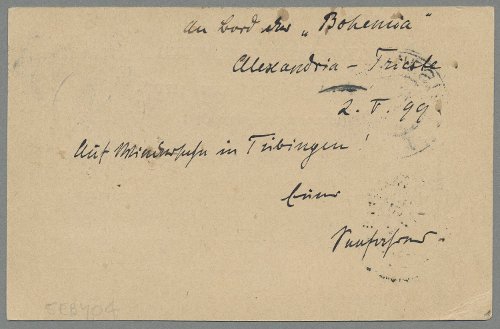 An Bord der „Bohemia“
Alexandria – Trieste
2. V. 99.
Auf Wiedersehn in Tübingen!
Euer